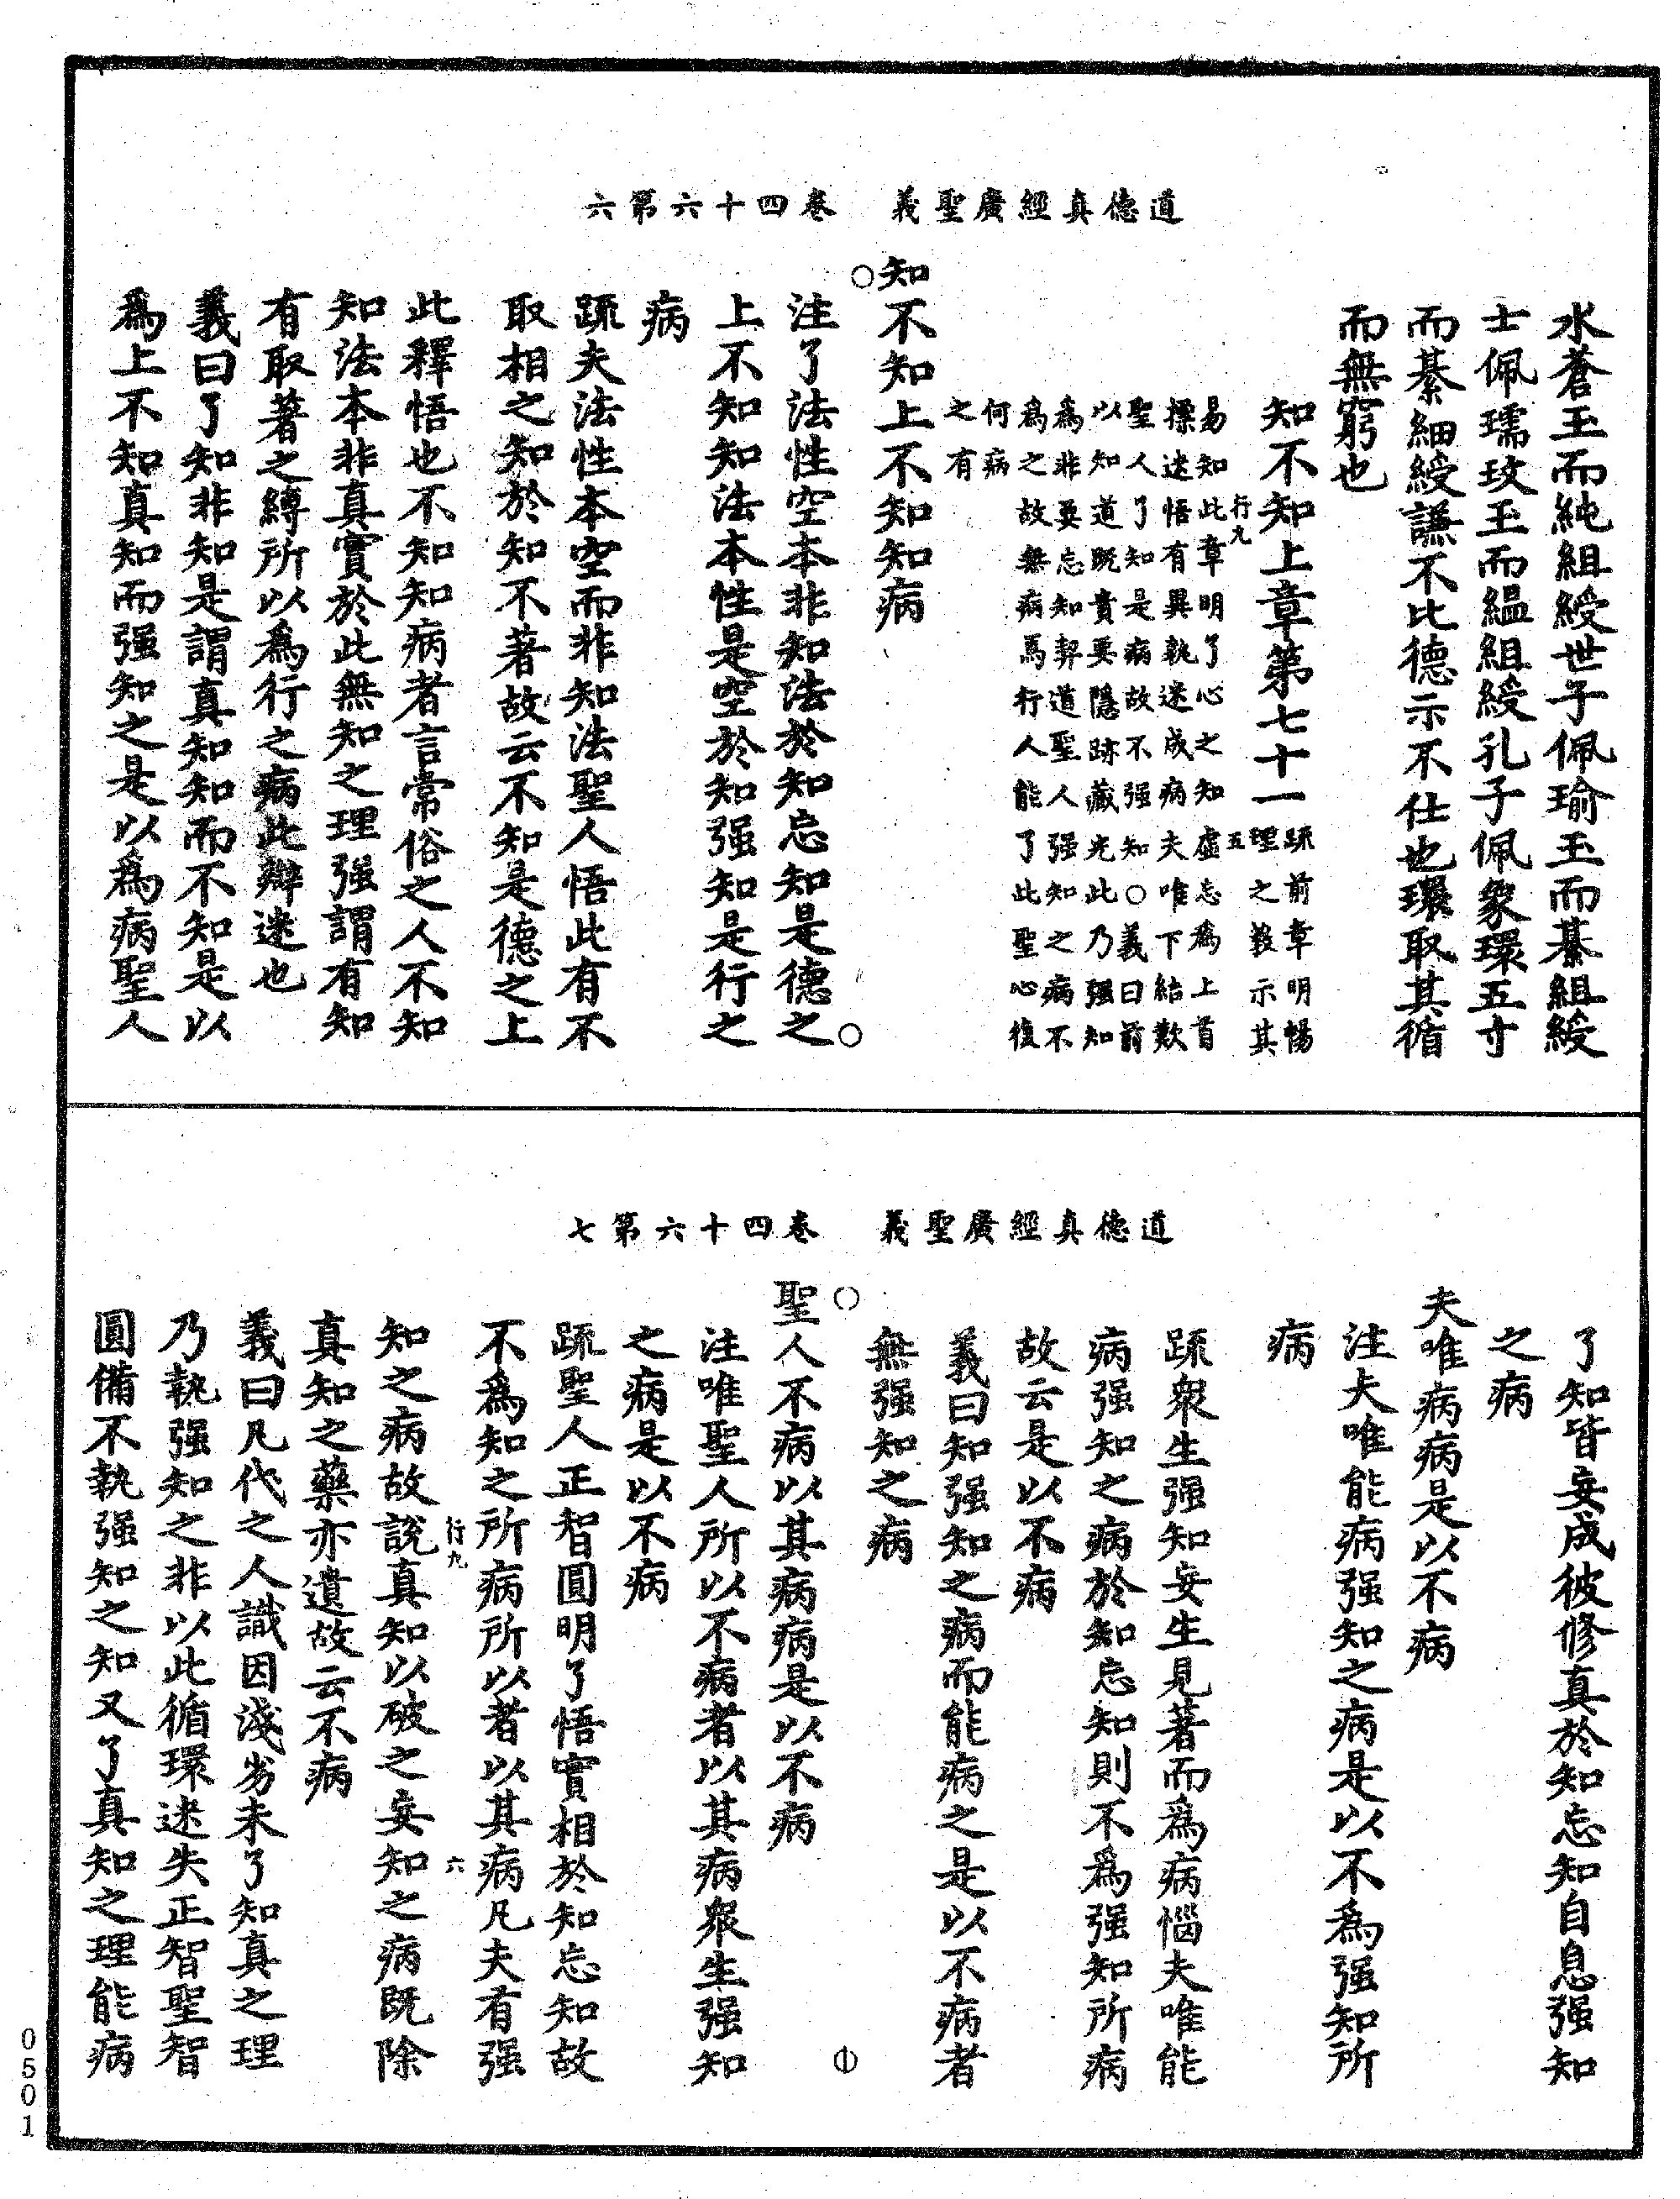 道德真經廣聖義　卷四十六第六
水蒼玉而純組綬世子佩瑜玉而綦組綬
士佩瓀玟玉而縕組綬孔子佩象環五寸
而綦組綬謙不比德示不仕也環取其循
而無窮也
知不知上章第七十一
疏前章明暢
理之教示其
行九
五
易知此章明了心之知虛忘爲上首
摽迷悟有異執迷成病夫唯下結歎
聖人了知是病故不强知○義曰前
以知道既貴要隱跡藏光此乃强知
爲非要忘知契道聖人强知之病不
爲之故無病焉行人能了此聖心復
何病
之有
知不知上不知知病
注了法性空本非知法於知忘知是德之
上不知知法本性是空於知强知是行之
病
疏夫法性本空而非知法聖人悟此有不
取相之知於知不著故云不知是德之上
此釋悟也不知知病者言常俗之人不知
知法本非真實於此無知之理强謂有知
有取著之縛所以爲行之病此辯迷也
義曰了知非知是謂真知知而不知是以
爲上不知真知而强知之是以爲病聖人
道德真經廣聖義　卷四十六第七
了知皆妄成彼修真於知忘知自息强知
之病
夫唯病病是以不病
注夫唯能病强知之病是以不爲强知所
病
疏衆生强知妄生見著而爲病惱夫唯能
病强知之病於知忘知則不爲强知所病
故云是以不病
義曰知强知之病而能病之是以不病者
無强知之病
聖人不病以其病病是以不病
注唯聖人所以不病者以其病衆生强知
之病是以不病
疏聖人正智圓明了悟實相於知忘知故
不爲知之所病所以者以其病凡夫有强
行九
六
知之病故說真知以破之妄知之病既除
真知之藥亦遣故云不病
義曰凡代之人識因淺劣未了知真之理
乃執强知之非以此循環迷失正智聖智
圓備不執强知之知又了真知之理能病
0501